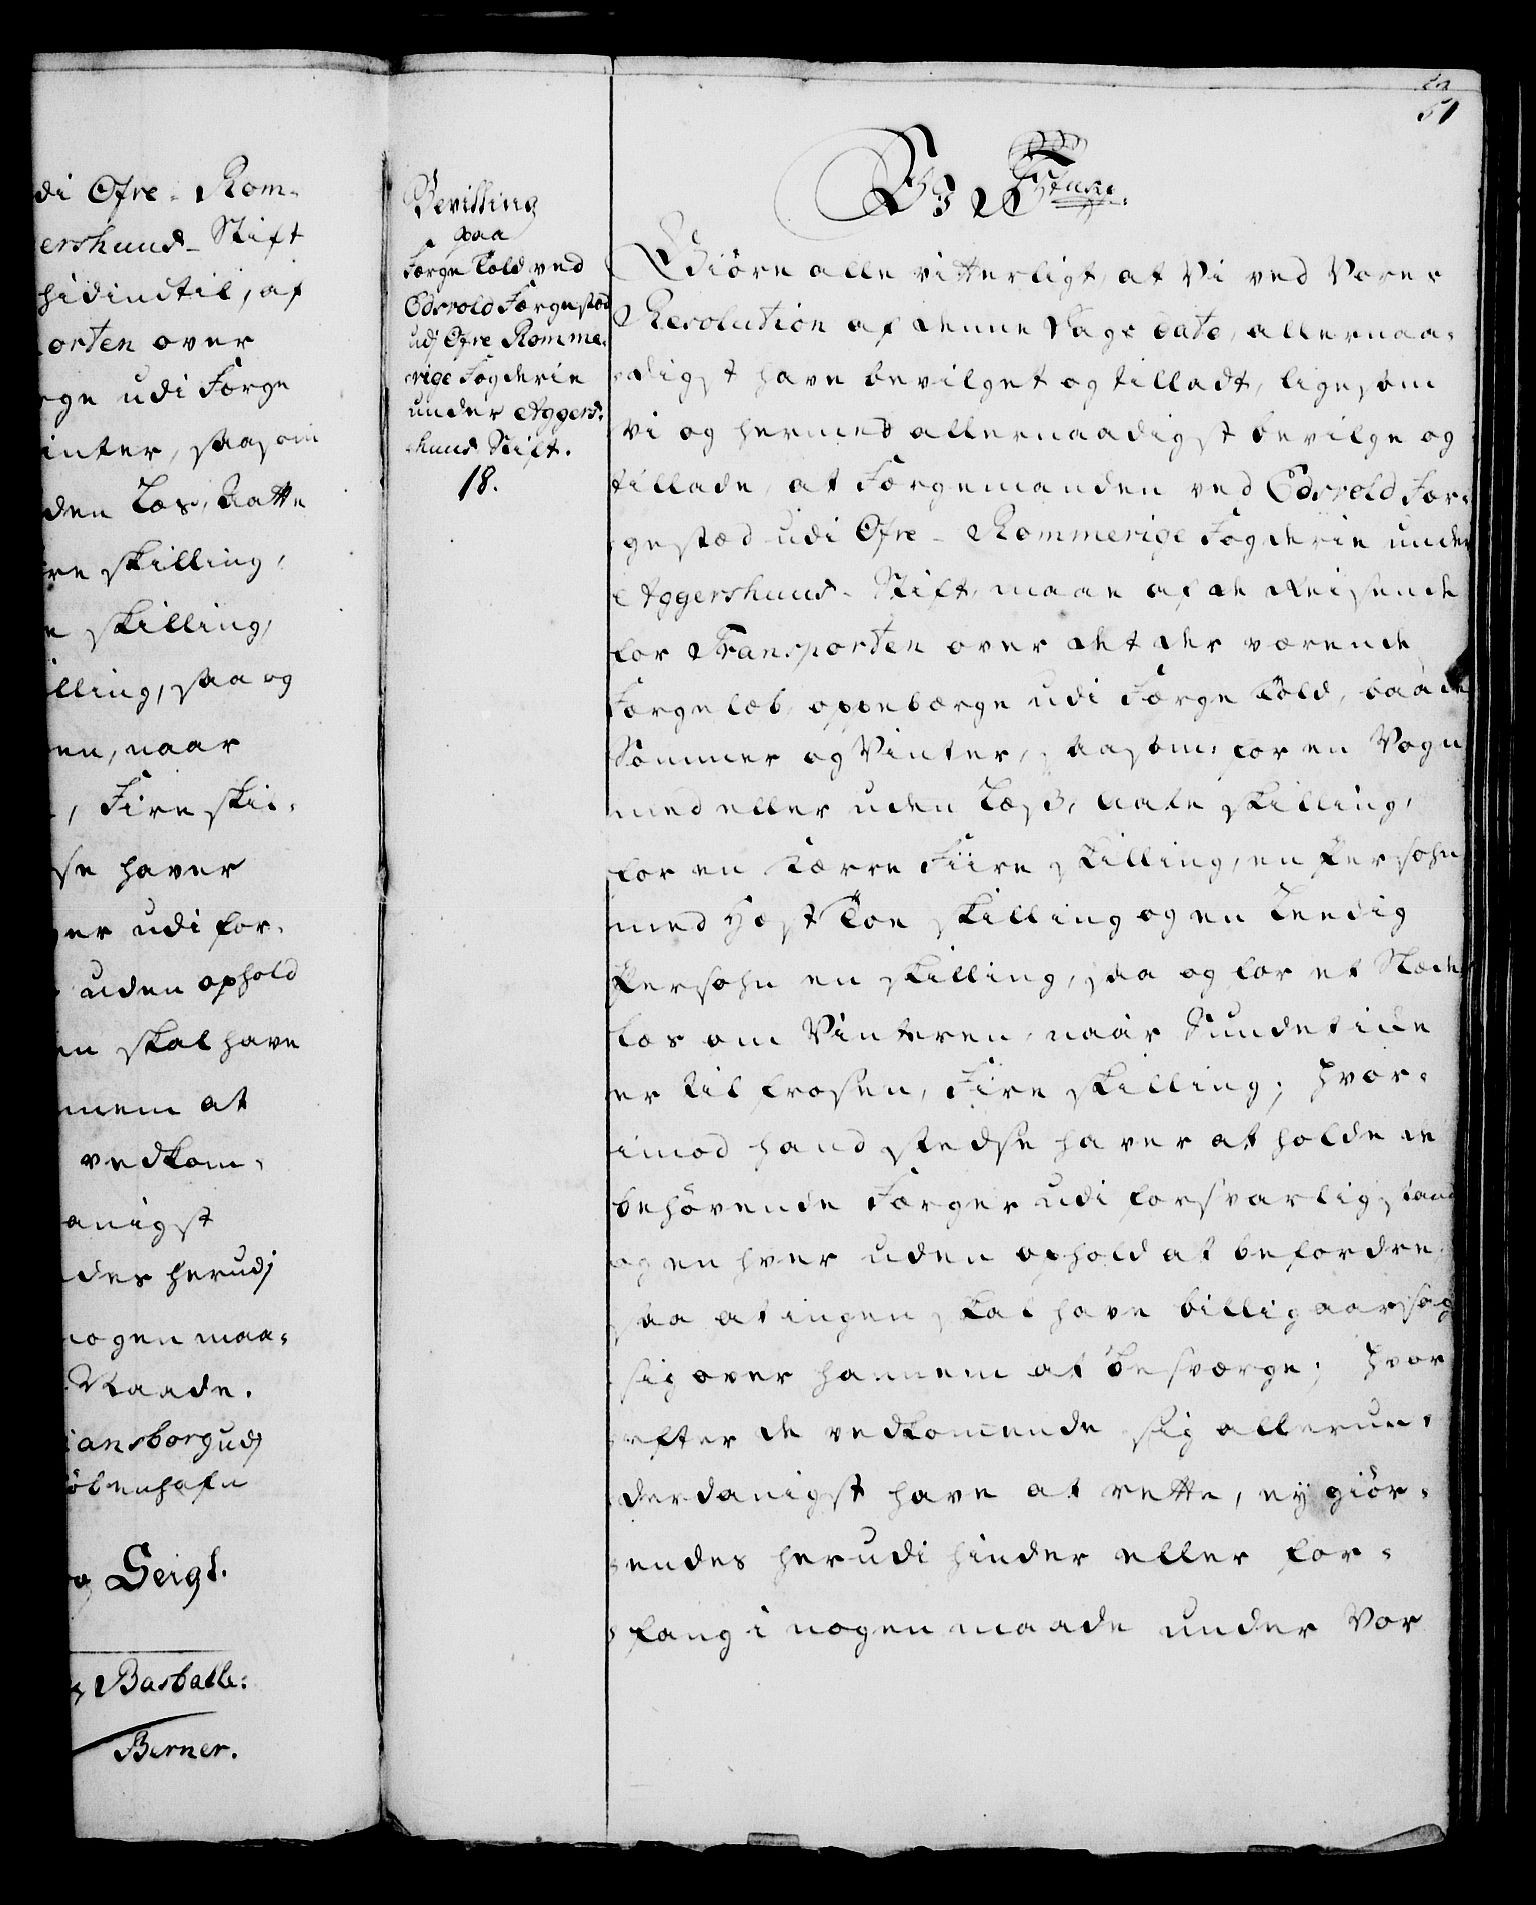 di Øfre- Rom-
ershuus- Stift
hidindtil, af
orten over
rge udi Færge
inter, saasom
den Læs, Aatte
re skilling,
n skilling,
illing, saa og
en, naar
, Fire skil-
se haver
er udi for-
uden ophold
en skal have
nnem at
vedkom-
anigst
des herudj
nogen maa-
Naade.
iansborg udj
öbenhafn
Seigl.
Basballe:
Berner.
Bevilling
paa
Færge Told ved
Edsvold Færgestæd
udj Øfre Romme-
rige Fogderie
under Aggers-
huus Stift.
18.
51
Giöre alle vitterligt, at Vi ved Vores
Resolution af denne Dags dato, allernaa-
digst have bevilget og tilladt, ligesom
Vi og hermed allernaadigst bevilge og
tillade, at Færgemanden ved Edsvold Fær-
gestæd udi Øfre- Rommerige Fogderie under
Aggershuus- Stift, maae af de Reisende
for Transporten over det der værende
Færgeløb, oppebærge udi Færge Told, baade
Sommer og Vinter, saasom, for en Vogn
med eller uden Læs, Aate skilling,
for en Kærre Fiire skilling, en Persohn
med Hest Toe skilling og en Leedig
Persohn en skilling, saa og for et Slæde
Læs om Vinteren, naar Sundet icke
er tilfrosen, Fire skilling; hvor-
imod hand stedse haver at holde de
behövende Færger udi forsvarlig stand
og en hver uden ophold at befordre,
saa at ingen skal have billig aarsag
sig over hannem at besværge; hvor
efter de vedkommende sig allerun-
derdanigst have at rette, ey giör-
endes herudi hinder eller for-
fang i nogen maade under Vor